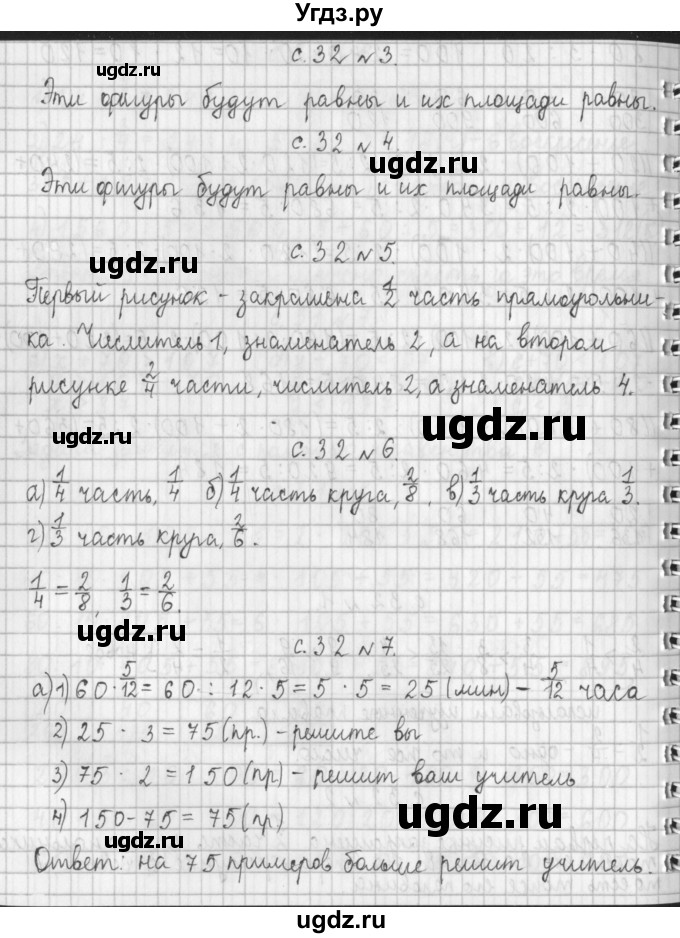 Угдз.ру
с. 32 №3.
ugdz.ru
Эти фигуры будут равны и их площади равны.
с. 32 №4.
ugdz.ru
Эти фигуры будут равны и их площади равны.
с. 32 №5.
ugdz.ru
Первый рисунок - закрашена 1/2 часть прямоугольни-
ка. Числитель 1, знаменатель 2, а на втором
рисунке 2/4 части, числитель 2, а знаменатель 4.
ugdz.ru
ugdz.ru
с. 32 №6.
а) 1/4 часть, 1/4 б) 1/4 часть круга, 2/8, в) 1/3 часть круга 1/3.
г) 1/3 часть круга, 2/6.
1/4 = 2/8, 1/3 = 2/6.
ugdz.ru
с. 32 №7.
а) 1) 60 · 5/12 = 60 : 12 · 5 = 5 · 5 = 25 (мин) - 5/12 часа
2) 25 · 3 = 75 (пр.) - решите вы
3) 75 · 2 = 150 (пр) - решит ваш учитель
4) 150 - 75 = 75 (пр)
ugdz.ru
ugdz.ru
Ответ: на 75 примеров больше решит учитель.
ugdz.ru